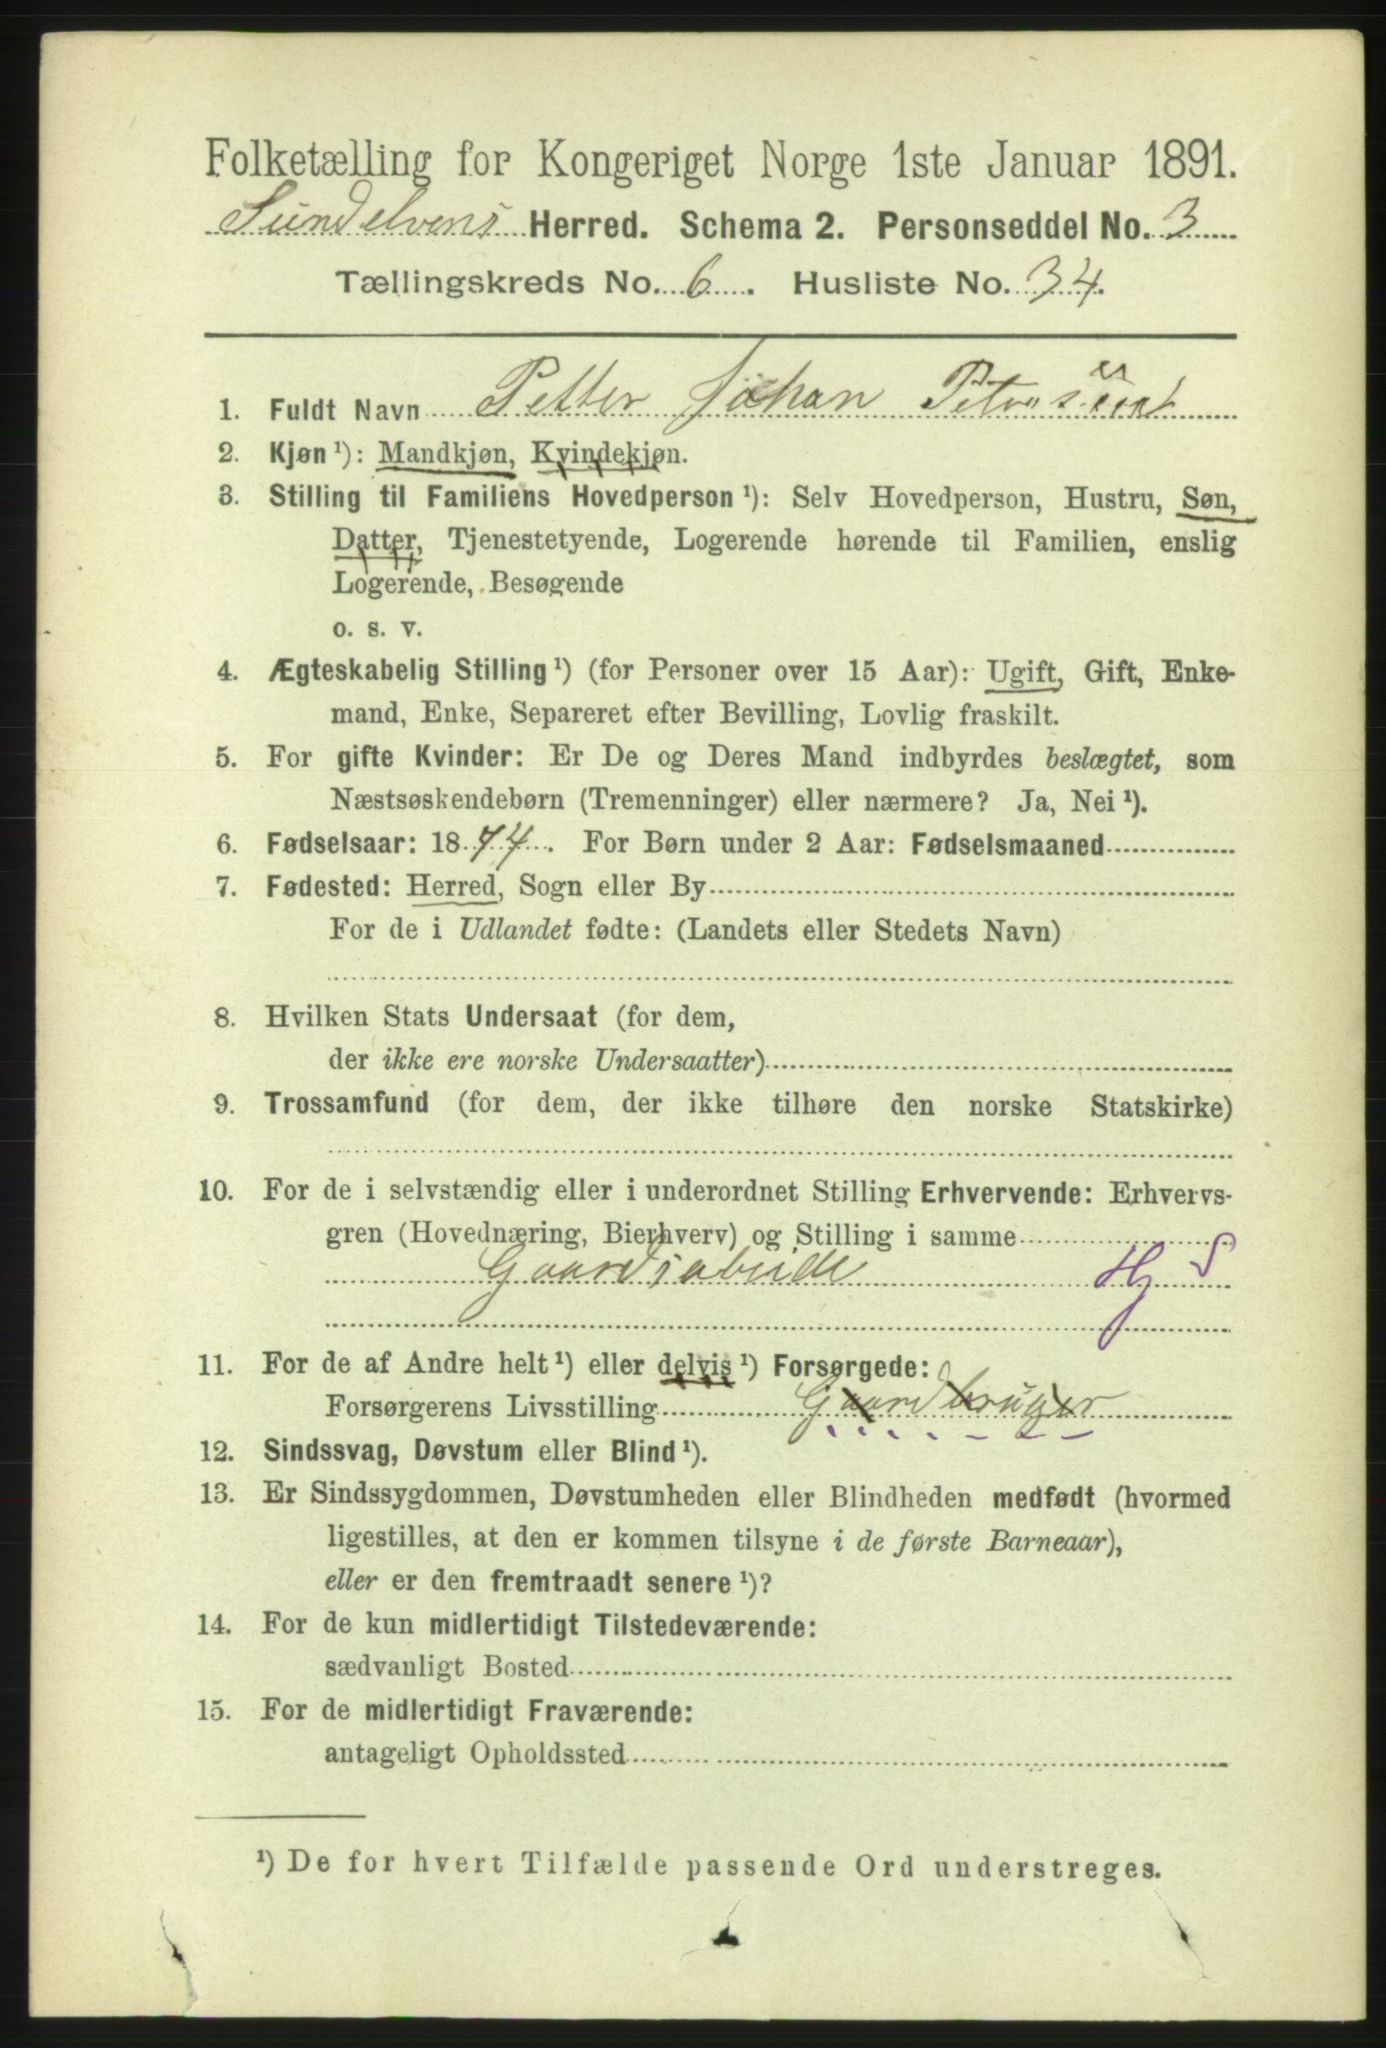 Folketælling for Kongeriget Norge 1ste Januar 1891.
Sundelvens Herred. Schema 2. Personseddel No. 3
Tællingskreds No. 6. Husliste No. 34.
1. Fuldt Navn Petter Johan
2. Kjøn ¹): Mandkjøn, Kvindekjøn.
3. Stilling til Familiens Hovedperson ¹): Selv Hovedperson, Hustru, Søn,
Datter, Tjenestetyende, Logerende hørende til Familien, enslig
Logerende, Besøgende
o. s. v.
4. Ægteskabelig Stilling ¹) (for Personer over 15 Aar): Ugift, Gift, Enke-
mand, Enke, Separeret efter Bevilling, Lovlig fraskilt.
5. For gifte Kvinder: Er De og Deres Mand indbyrdes beslægtet, som
Næstsøskendebørn (Tremenninger) eller nærmere? Ja, Nei ¹).
6. Fødselsaar: 1874. For Børn under 2 Aar: Fødselsmaaned
7. Fødested: Herred, Sogn eller By
For de i Udlandet fødte: (Landets eller Stedets Navn)
8. Hvilken Stats Undersaat (for dem,
der ikke ere norske Undersaatter)
9. Trossamfund (for dem, der ikke tilhøre den norske Statskirke)
10. For de i selvstændig eller i underordnet Stilling Erhvervende: Erhvervs-
gren (Hovednæring, Bierhverv) og Stilling i samme
Gaardsabeide Hj S
11. For de af Andre helt ¹) eller delvis ¹) Forsørgede:
Forsørgerens Livsstilling Gaardbruger
12. Sindssvag, Døvstum eller Blind ¹).
13. Er Sindssygdommen, Døvstumheden eller Blindheden medfødt (hvormed
ligestilles, at den er kommen tilsyne i de første Barneaar),
eller er den fremtraadt senere ¹)?
14. For de kun midlertidigt Tilstedeværende:
sædvanligt Bosted
15. For de midlertidigt Fraværende:
antageligt Opholdssted
¹) De for hvert Tilfælde passende Ord understreges.